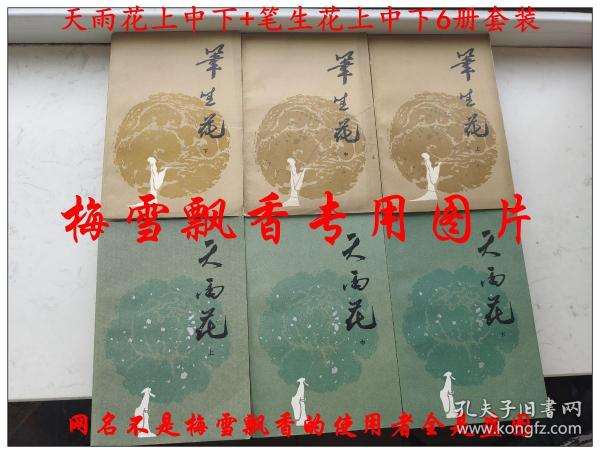 天雨花上中下+笔生花上中下6册套装
笔生花 下
笔生花 中
笔生花 上
梅雪飘香专用图片
天雨花 上
天雨花 中
天雨花 下
网名不是梅雪飘香的使用者全是盗用
孔夫子旧书网
www.kongfz.com